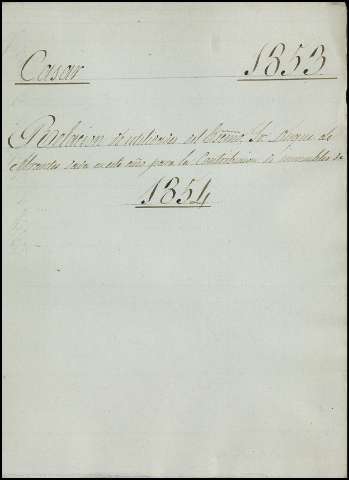 Casar 1853
Relacion de utilidades del Excmo. Sr. Duque de
Abrantes dada en este año para la Contribucion de inmuebles de
1854